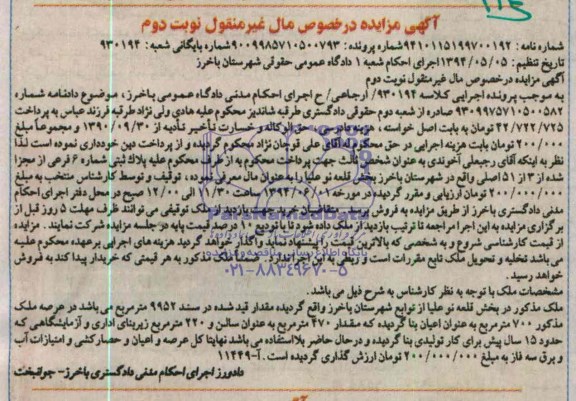 آگهی مزایده درخصوص مال غیرمنقول نوبت دوم
شماره نامه: ۹۴۱۰۱۱۵۱۹۹۷۰۰۱۹۲ شماره پرونده: ۹۰۰۹۹۸۵۷۱۰۵۰۰۷۹۳ شماره بایگانی شعبه: ۹۳۰۱۹۴
تاریخ تنظیم: ۱۳۹۴/۰۵/۰۵ اجرای احکام شعبه ۱ دادگاه عمومی حقوقی شهرستان باخرز
آگهی مزایده درخصوص مال غیرمنقول نوبت دوم
به موجب پرونده اجرایی کلاسه ۹۳۰۱۹۴/ ارجاعی/ ح اجرای احکام مدنی دادگاه عمومی باخرز، موضوع دادنامه شماره
۹۳۰۹۹۷۵۷۱۰۵۰۰۵۸۲ صادره از شعبه دوم حقوقی دادگستری طرقبه شاندیز محکوم علیه هادی ولی نژاد طرقبه فرزند عباس به پرداخت
۴۲/۷۲۲/۷۲۵ تومان به بابت اصل خواسته، هزینه دادرسی، حق الوکاله و خسارت تأخیر تأدیه از ۱۳۹۰/۰۹/۳۰ و مجموعاً مبلغ
۲۰۰/۰۰۰ تومان بابت هزینه اجرایی در حق محکوم له آقای علی قوجان نژاد محکوم گردیده و از پرداخت دین خودداری نموده است لذا
نظر به اینکه آقای رجبعلی آخوندی به عنوان شخص ثالث جهت پرداخت محکوم به از طرف محکوم علیه پلاک ثبتی شماره ۶ فرعی از مجزا
شده از ۳ از ۵۱ اصلی واقع در شهرستان باخرز بخش قلعه نو علیا را به عنوان مال معرفی نموده، توقیف و توسط کارشناس منتخب به مبلغ
۲۰۰/۰۰۰/۰۰۰ تومان ارزیابی و مقرر گردید در مورخه ۱۳۹۴/۰۶/۰۱ ساعت ۱۱/۳۰ الی ۱۲/۰۰ صبح در محل دفتر اجرای احکام
مدنی دادگستری باخرز از طریق مزایده به فروش برسد. متقاضیان خرید جهت بازدید از ملک توقیفی می توانند ظرف مهلت ۵ روز قبل از
برگزاری مزایده به این اجرا مراجعه تا ترتیب بازدید از ملک داده شود تا با تودیع ۱۰ درصد قیمت پایه در جلسه مزایده شرکت نمایند. مزایده
از قیمت کارشناسی شروع و به شخصی که بالاترین قیمت را پیشنهاد نماید واگذار خواهد گردید هزینه های اجرایی برعهده محکوم علیه
می باشد تخلیه و تحویل ملک تابع مقررات است و ربطی به این اجرا ندارد. ضمناً ملک مذکور به هر قیمتی که خریدار پیدا کند به فروش
خواهد رسید.
مشخصات ملک با توجه به نظر کارشناس به شرح ذیل می باشد.
ملک مذکور در بخش قلعه نو علیا از توابع شهرستان باخرز واقع گردیده مقدار قید شده در سند ۹۹۵۲ مترمربع می باشد در عرصه ملک
مذکور ۷۰۰ مترمربع به عنوان اعیان بنا گردیده که مقدار ۴۷۰ مترمربع به عنوان سالن و ۲۲۰ مترمربع زیربنای اداری و آزمایشگاهی که
حدود ۱۵ سال پیش برای کار تولیدی بنا گردیده و درحال حاضر بلااستفاده می باشد نهایتا کل عرصه و اعیان و حصارکشی و امتیازات آب
و برق سه فاز به مبلغ ۲۰۰/۰۰۰/۰۰۰ تومان ارزش گذاری گردیده است. آ-۱۱۴۴۹
دادورز اجرای احکام مدنی دادگستری باخرز- جوانبخت
ParsNamadData
پایگاه اطلاع رسانی مناقصه و مزایده
۰۲۱-۸۸۳۴۹۶۷۰-۵